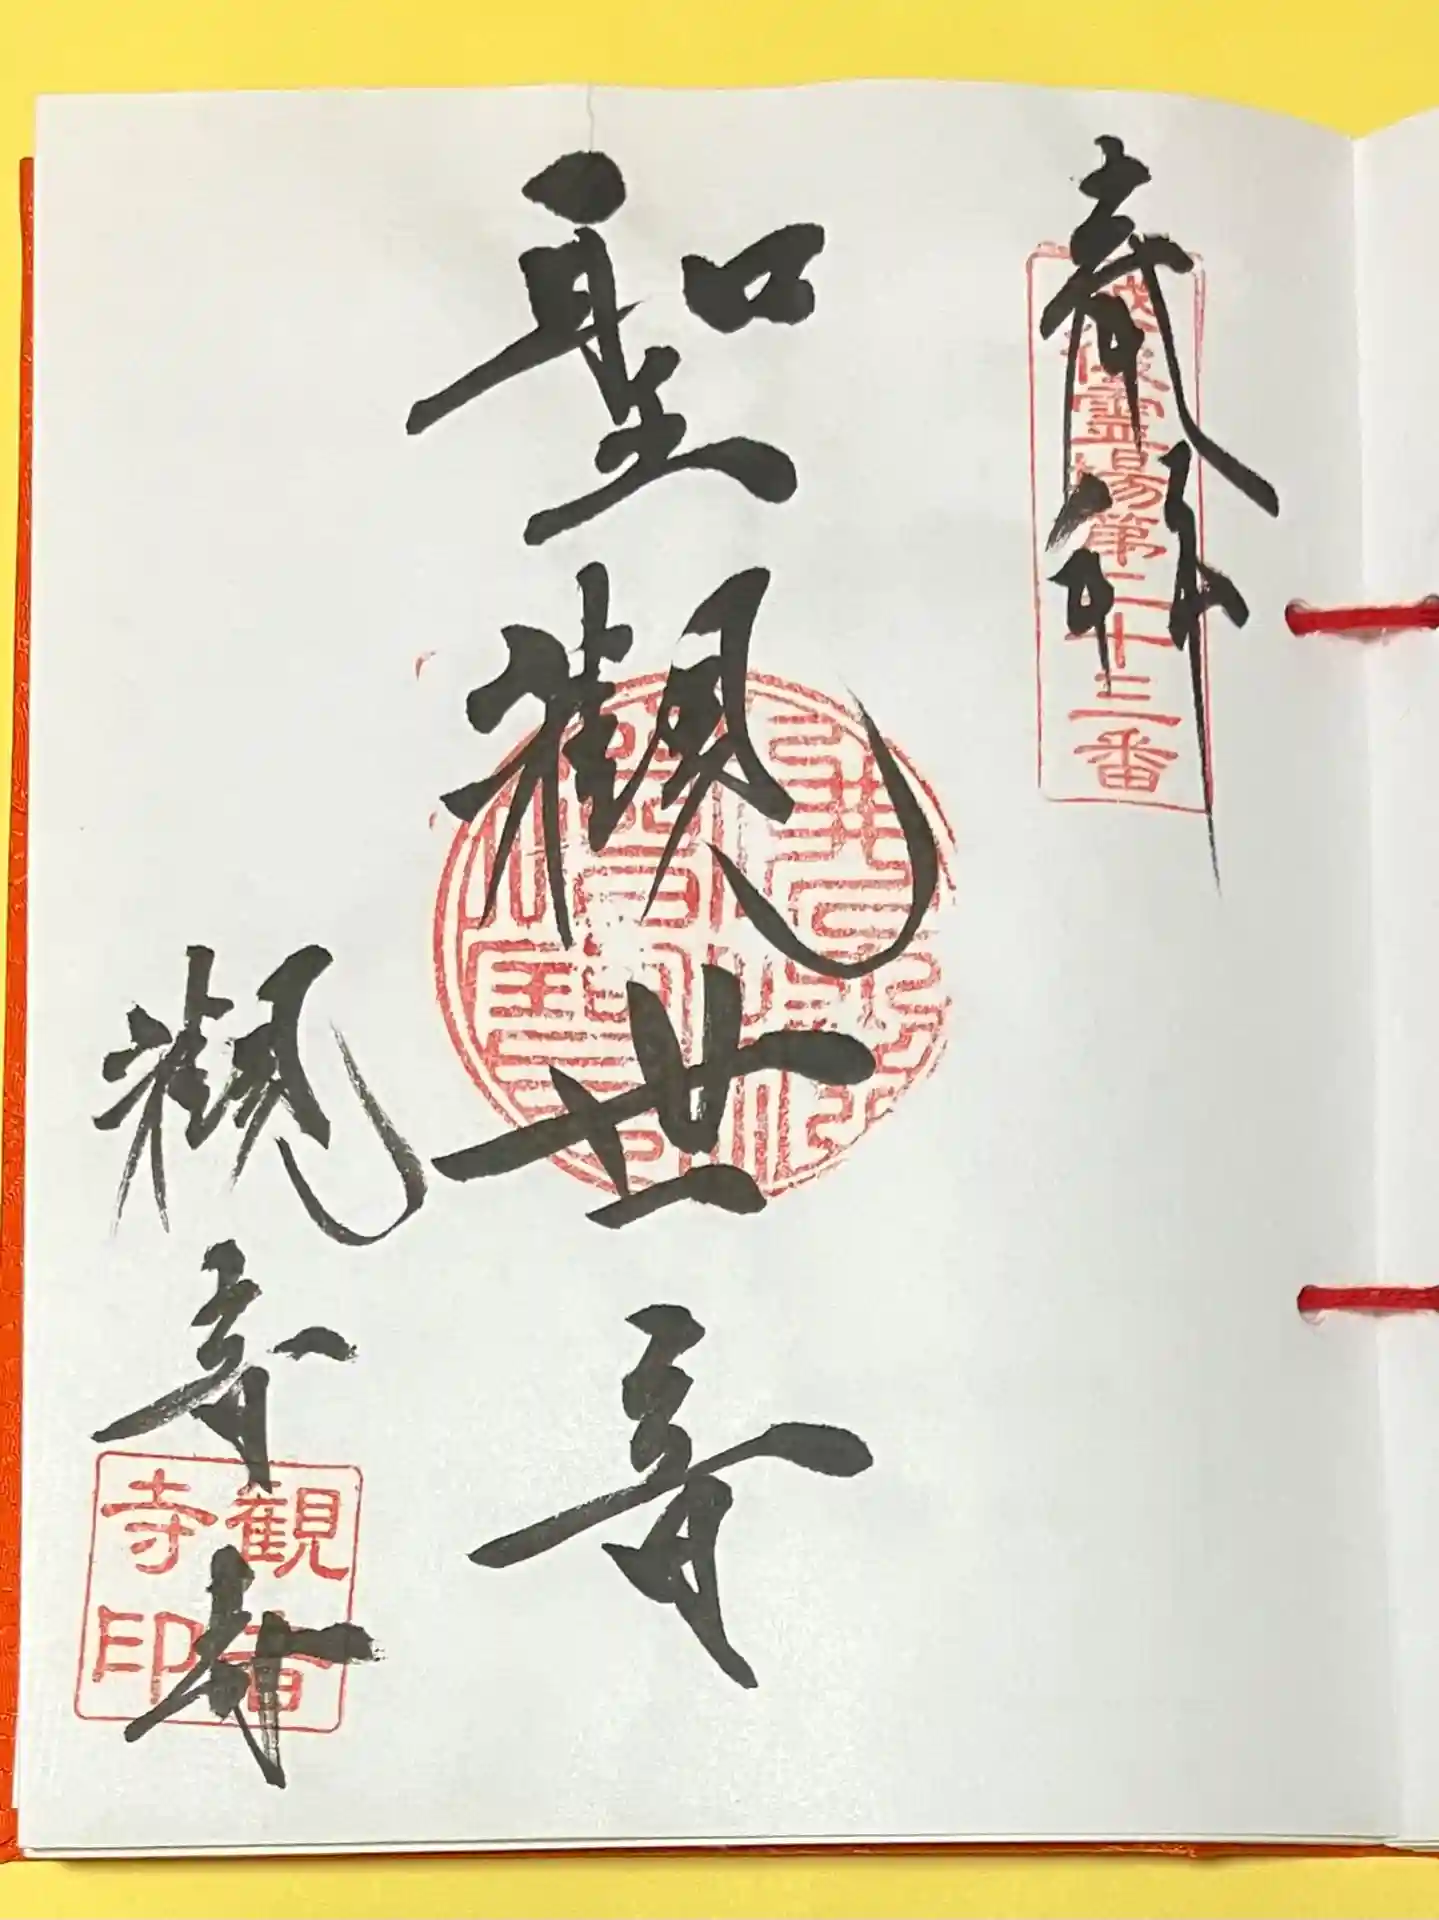 奉拝
後霊場第二十三番
聖観世音
観音寺
観音
寺印